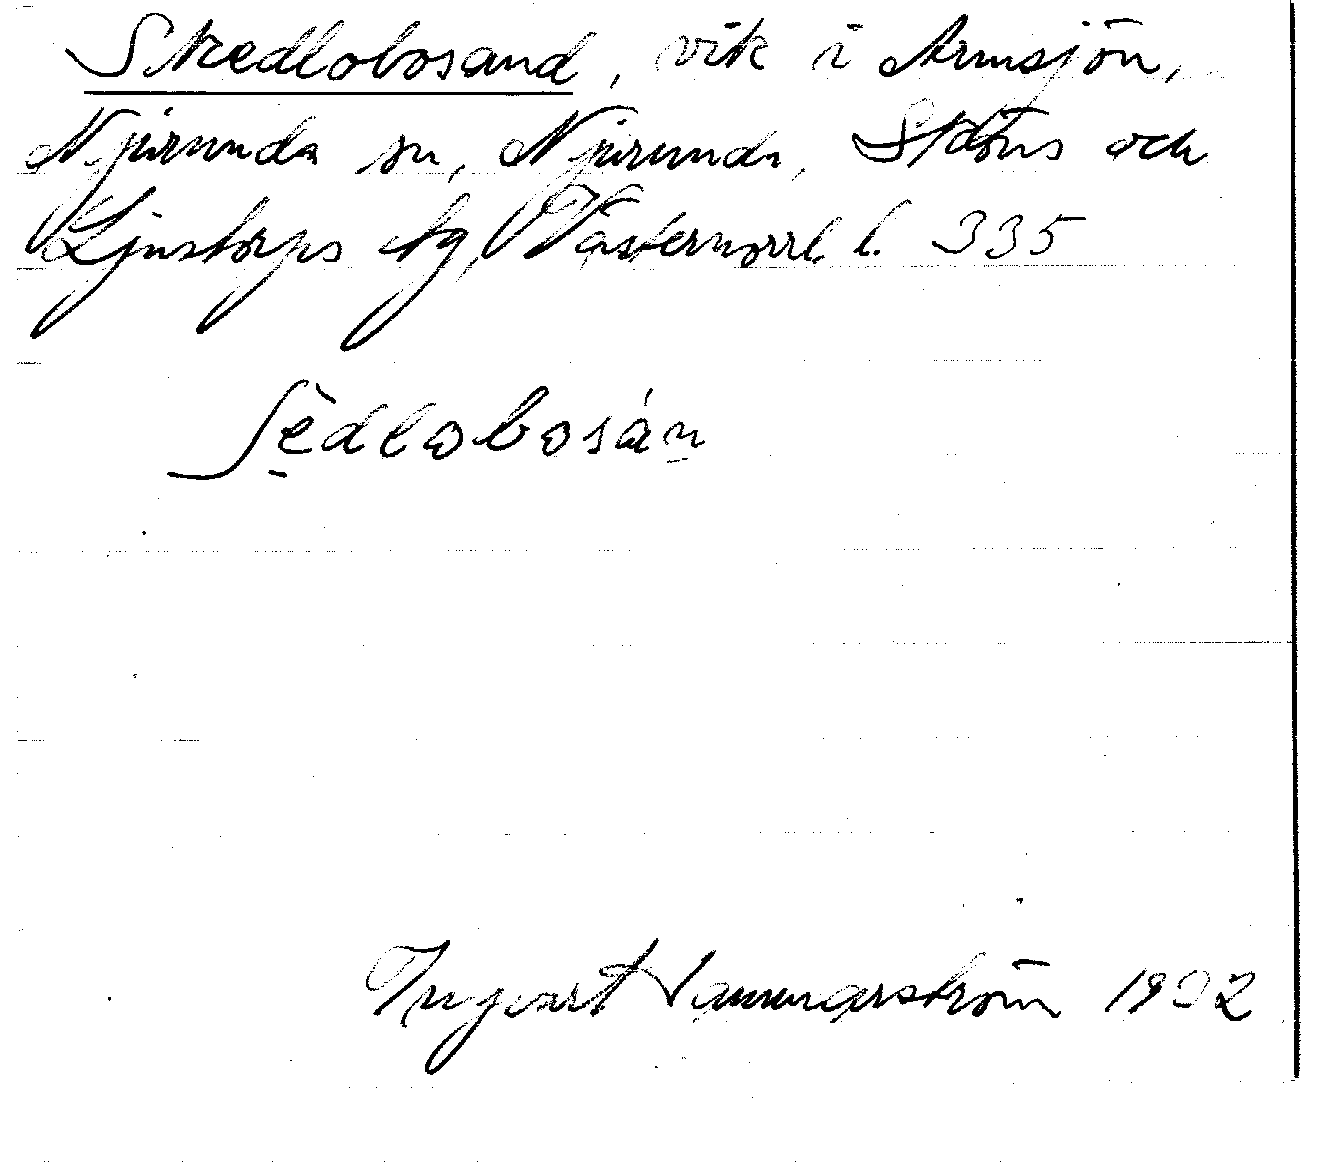 Skedlobosand, vik i Armsjön,
Njurunda sn, Njurunda, Sköns och
Ljustorps tg, Västernorrl. l. 335
ʃèdlobosán
Ingvart 1932